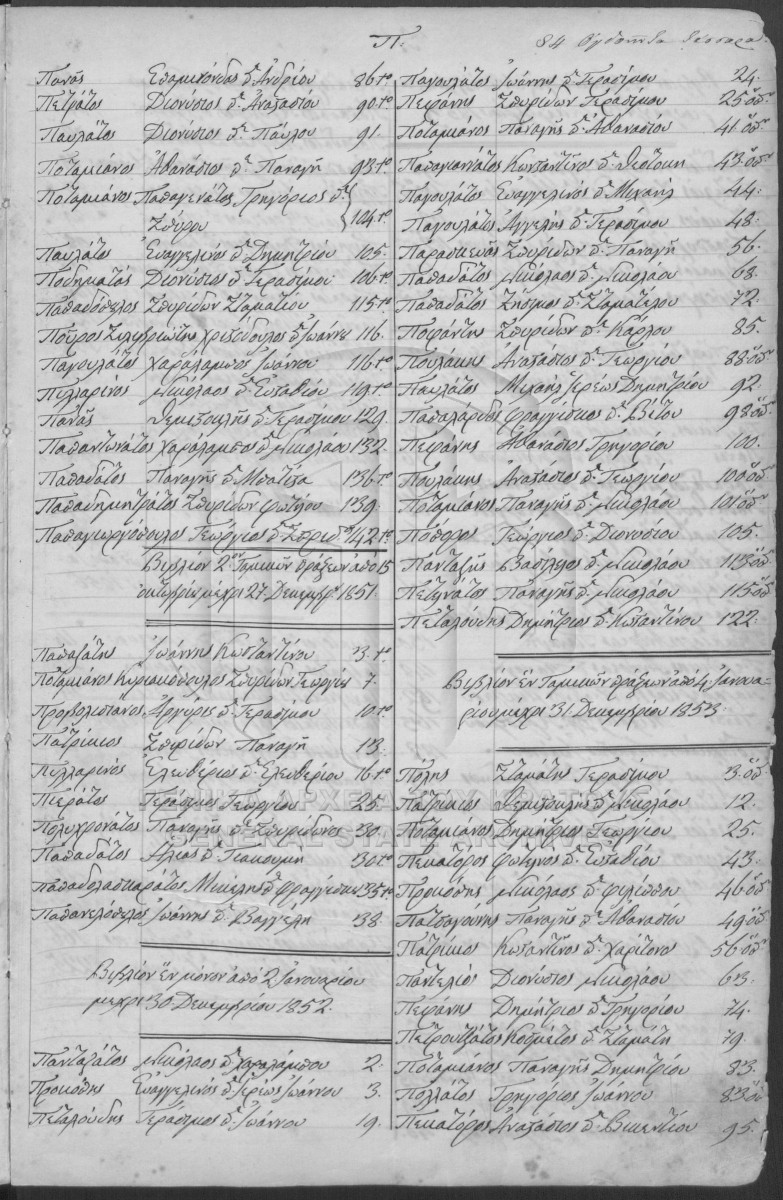 Π.
84 Ογδοήντα τέσσαρα
Πανᾶς Ἐπαμινόνδας π. Ἀνδρέου 86 το
Πετράτος Διονύσιος π. Ἀναστασίου 90 το
Παυλάτος Διονύσιος π. Παύλου 91.
Ποταμιάνος Ἀθανάσιος π. Παναγῆ 93 το
Ποταμιάνος Παπαγενάτος Γρηγόριος π.
Σπύρου 104 το
Παυλάτος Εὐαγγελινός π. Δημητρίου 105.
Ποδηματάς Διονύσιος π. Γερασίμου 106 το
Παπαδόπουλος Σπυρίδων Σταματίου 115 το
Πούρος Χριστόδουλος π. Ἰωάννου 116.
Παγουλάτος Χαράλαμπος Ἰωάννου 116 το
Πυλλαρινός Νικόλαος π. Εὐσταθίου 119 το
Πανᾶς Θεμιστοκλῆς π. Γερασίμου 129.
Παπαντωνάτος Χαράλαμπος π. Νικολάου 132.
Παπαδάτος Παναγῆς π. 136 το
Παπαδημητράτος Σπυρίδων Φωτεινού 139.
Παπαγεωργόπουλος Γεώργιος π. Σπυρίδ. 142 το
Βιβλίον 2ον Γαμικῶν πράξεων ἀπό 15
ὀκτωβρίου μέχρι 27 Δεκεμβρ. 1851.
Παπαζάτης Ἰωάννης Κωσταντίνου 3. το
Ποταμιάνος Κυριακόπουλος Σπυρίδων Γεωργίου 7.
Προβολισιάνος Ἀργύρις π. Γερασίμου 10. το
Πατρίκιος Σπυρίδων Παναγῆ 13.
Πυλλαρινός Ἐλευθέριος π. Ἐλευθερίου 16 το
Πιεράτος Γεράσιμος Γεωργίου 25.
Πολυχρονάτος Παναγῆς π. Σπυρίδωνος 30.
Παπαδάτος Ἠλίας π. Γιακουμῆ 30 το
Μικέλης π. Φραγγίσκου 35 το
Παπανελόπουλος Ἰωάννης π. Βαγγέλη 38.
Βιβλίον ἕν μόνον ἀπό 2 Ἰανουαρίου
μέχρι 30 Δεκεμβρίου 1852.
Πανταζάτος Νικόλαος π. Χαραλάμπου 2.
Προκόπης Εὐαγγελινός π. Ἱερέως Ἰωάννου 3.
Πεταλούδης Γεράσιμος π. Ἰωάννου 19.
Παγουλάτος Ἰωάννης π. Γερασίμου 24.
Πεφάνης Σπυρίδων Γερασίμου 25 ὄπ.
Ποταμιάνος Παναγῆς π. Ἀθανασίου 41. ὄπ.
Παπαγιαννάτος Κωσταντῖνος π. Θεοτόκη 43. ὄπ.
Παγουλάτος Εὐαγγελινός π. Μιχαήλ 44.
Παγουλάτος Ἀγγελῆς π. Γερασίμου 48.
Παρασκευᾶς Σπυρίδων π. Παναγῆ 56.
Παπαδάτος Νικόλαος π. Νικολάου 68.
Παπαδάτος Ζήσιμος π. Σταματέλου 72.
Ποφάντης Σπυρίδων π. Κάρλου 85.
Πουλάκης Ἀναστάσιος π. Γεωργίου 88 ὄπ.
Παυλάτος Μιχαήλ Ἱερέως Δημητρίου 92.
Φραγγίσκος π. Βίτου 98 ὄπ.
Πεφάνης Ἀθανάσιος Γρηγορίου 100.
Πουλάκης Ἀναστάσιος π. Γεωργίου 100 ὄπ.
Ποταμιάνος Παναγῆς π. Νικολάου 101 ὄπ.
Γεώργιος π. Διονυσίου 105.
Πανταζῆς Βασίλειος π. Νικολάου 113 ὄπ.
Πετηνάτος Παναγῆς π. Νικολάου 115 ὄπ.
Πεταλούδης Δημήτριος π. Κωσταντίνου 122.
Βιβλίον ἕν Γαμικῶν πράξεων ἀπό 4 Ἰανουα-
ρίου μέχρι 31 Δεκεμβρίου 1853.
Πόλης Σταμάτης Γερασίμου 3. ὄπ.
Πατρίκιος Θεμιστοκλῆς π. Νικολάου 12.
Ποταμιάνος Δημήτριος Γεωργίου 25.
Πεκατόρος Φωτεινός π. Εὐσταθίου 43.
Προκόπης Νικόλαος π. Φιλίππου 46 ὄπ.
Πατσαγούνης Παναγῆς π. Ἀθανασίου 49 ὄπ.
Πατρίκιος Κωσταντῖνος π. Χαρίτωνο 56 ὄπ.
Παντελιός Διονύσιος Νικολάου 63.
Πεφάνης Δημήτριος π. Γρηγορίου 74.
Πετρουτζάτος Κοσμέτος π. Σταμάτη 79.
Ποταμιάνος Παναγῆς Δημητρίου 83.
Πολλάτος Γρηγόριος Ἰωάννου 83 ὄπ.
Πεκατόρος Ἀναστάσιος π. Βικεντίου 95.
ΓΕΝΙΚΑ ΑΡΧΕΙΑ ΤΟΥ ΚΡΑΤΟΥΣ
GENERAL STATE ARCHIVES